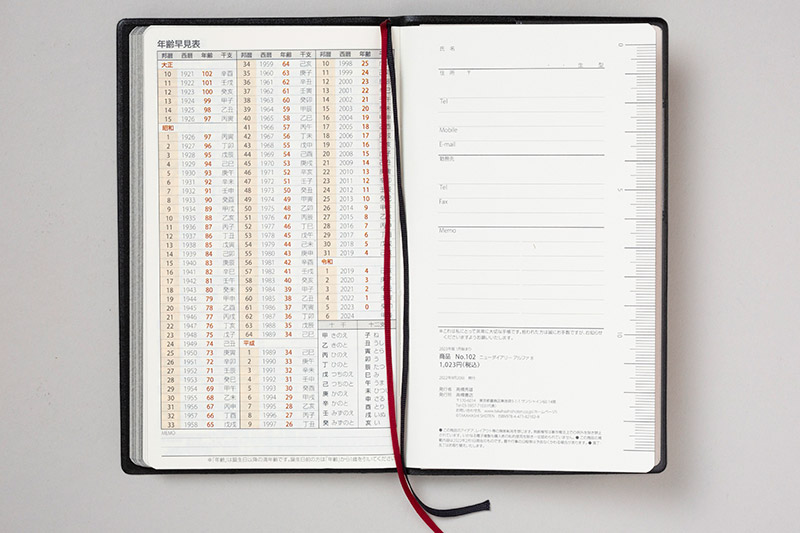 年齢早見表
邦暦 西暦 年齢 干支
大正
10 1921 102 辛酉
11 1922 101 壬戌
12 1923 100 癸亥
13 1924 99 甲子
14 1925 98 乙丑
15 1926 97 丙寅
昭和
1 1926 97 丙寅
2 1927 96 丁卯
3 1928 95 戊辰
4 1929 94 己巳
5 1930 93 庚午
6 1931 92 辛未
7 1932 91 壬申
8 1933 90 癸酉
9 1934 89 甲戌
10 1935 88 乙亥
11 1936 87 丙子
12 1937 86 丁丑
13 1938 85 戊寅
14 1939 84 己卯
15 1940 83 庚辰
16 1941 82 辛巳
17 1942 81 壬午
18 1943 80 癸未
19 1944 79 甲申
20 1945 78 乙酉
21 1946 77 丙戌
22 1947 76 丁亥
23 1948 75 戊子
24 1949 74 己丑
25 1950 73 庚寅
26 1951 72 辛卯
27 1952 71 壬辰
28 1953 70 癸巳
29 1954 69 甲午
30 1955 68 乙未
31 1956 67 丙申
32 1957 66 丁酉
33 1958 65 戊戌
邦暦 西暦 年齢 干支
34 1959 64 己亥
35 1960 63 庚子
36 1961 62 辛丑
37 1962 61 壬寅
38 1963 60 癸卯
39 1964 59 甲辰
40 1965 58 乙巳
41 1966 57 丙午
42 1967 56 丁未
43 1968 55 戊申
44 1969 54 己酉
45 1970 53 庚戌
46 1971 52 辛亥
47 1972 51 壬子
48 1973 50 癸丑
49 1974 49 甲寅
50 1975 48 乙卯
51 1976 47 丙辰
52 1977 46 丁巳
53 1978 45 戊午
54 1979 44 己未
55 1980 43 庚申
56 1981 42 辛酉
57 1982 41 壬戌
58 1983 40 癸亥
59 1984 39 甲子
60 1985 38 乙丑
61 1986 37 丙寅
62 1987 36 丁卯
63 1988 35 戊辰
64 1989 34 己巳
平成
1 1989 34 己巳
2 1990 33 庚午
3 1991 32 辛未
4 1992 31 壬申
5 1993 30 癸酉
6 1994 29 甲戌
7 1995 28 乙亥
8 1996 27 丙子
9 1997 26 丁丑
邦暦 西暦 年齢
10 1998 25
11 1999 24
12 2000 23
13 2001 22
14 2002 21
15 2003 20
16 2004 19
17 2005 18
18 2006 17
19 2007 16
20 2008 15
21 2009 14
22 2010 13
23 2011 12
24 2012 11
25 2013 10
26 2014 9
27 2015 8
28 2016 7
29 2017 6
30 2018 5
31 2019 4
令和
1 2019 4
2 2020 3
3 2021 2
4 2022 1
5 2023 0
6 2024
十干 十二
甲 きのえ 子 ね
乙 きのと 丑 うし
丙 ひのえ 寅 とら
丁 ひのと 卯 う
戊 つちのえ 辰 たつ
己 つちのと 巳 み
庚 かのえ 午 うま
辛 かのと 未
壬 みずのえ 戌 いぬ
癸 みずのと 亥 い
MEMO
氏名
生 型
住所 〒
Tel
Mobile
E-mail
勤務先
Tel
Fax
Memo
商品 No.102 ニューダイアリー アルファ 8
1,023円(税込)
0
5
10